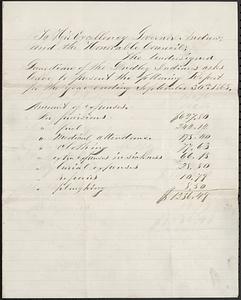 To His Excellency Governor Andrew,
and the Honorable Council;
The undersigned
Guardian of the Dudley Indians asks
leave to present the following Report
for the year ending September 30th 1863.
Amount of expenses.
For provisions $697.80
" fuel 244.14
" Medical attendance 173.40
" Clothing 77.63
" extra expenses in sickness 66.13
" burial expenses 28.80
" repairs 10.79
" ploughing 8.50
$1256.49